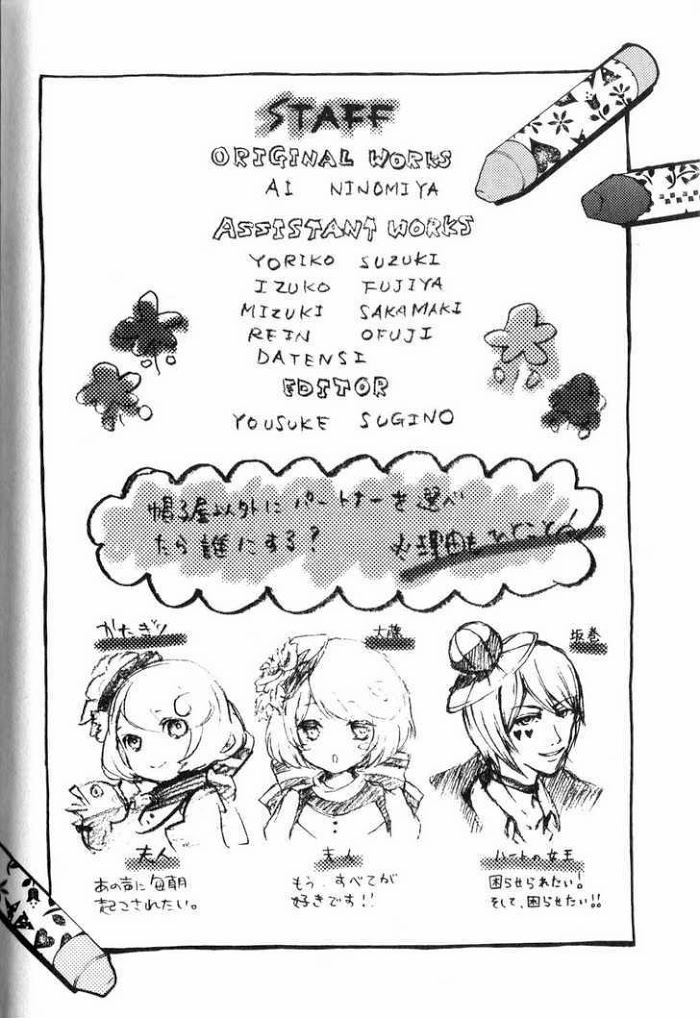 STAFF
ORIGINAL WORKS
AI NINOMIYA
ASSISTANT WORKS
YORIKO SUZUKI
IZUKO FUJIYA
MIZUKI SAKAMAKI
REIN OFUJI
DATENSI
EDITOR
YOUSUKE SUGINO
帽子屋以外にパートナーを選べ
たら誰にする? ※理由もひとこと。
かたぎり
大藤
坂巻
夫人
夫人
ハートの女王
あの声に毎朝
起こされたい。
もう、すべてが
好きです!!
困らせられたい!
そして、困らせたい!!